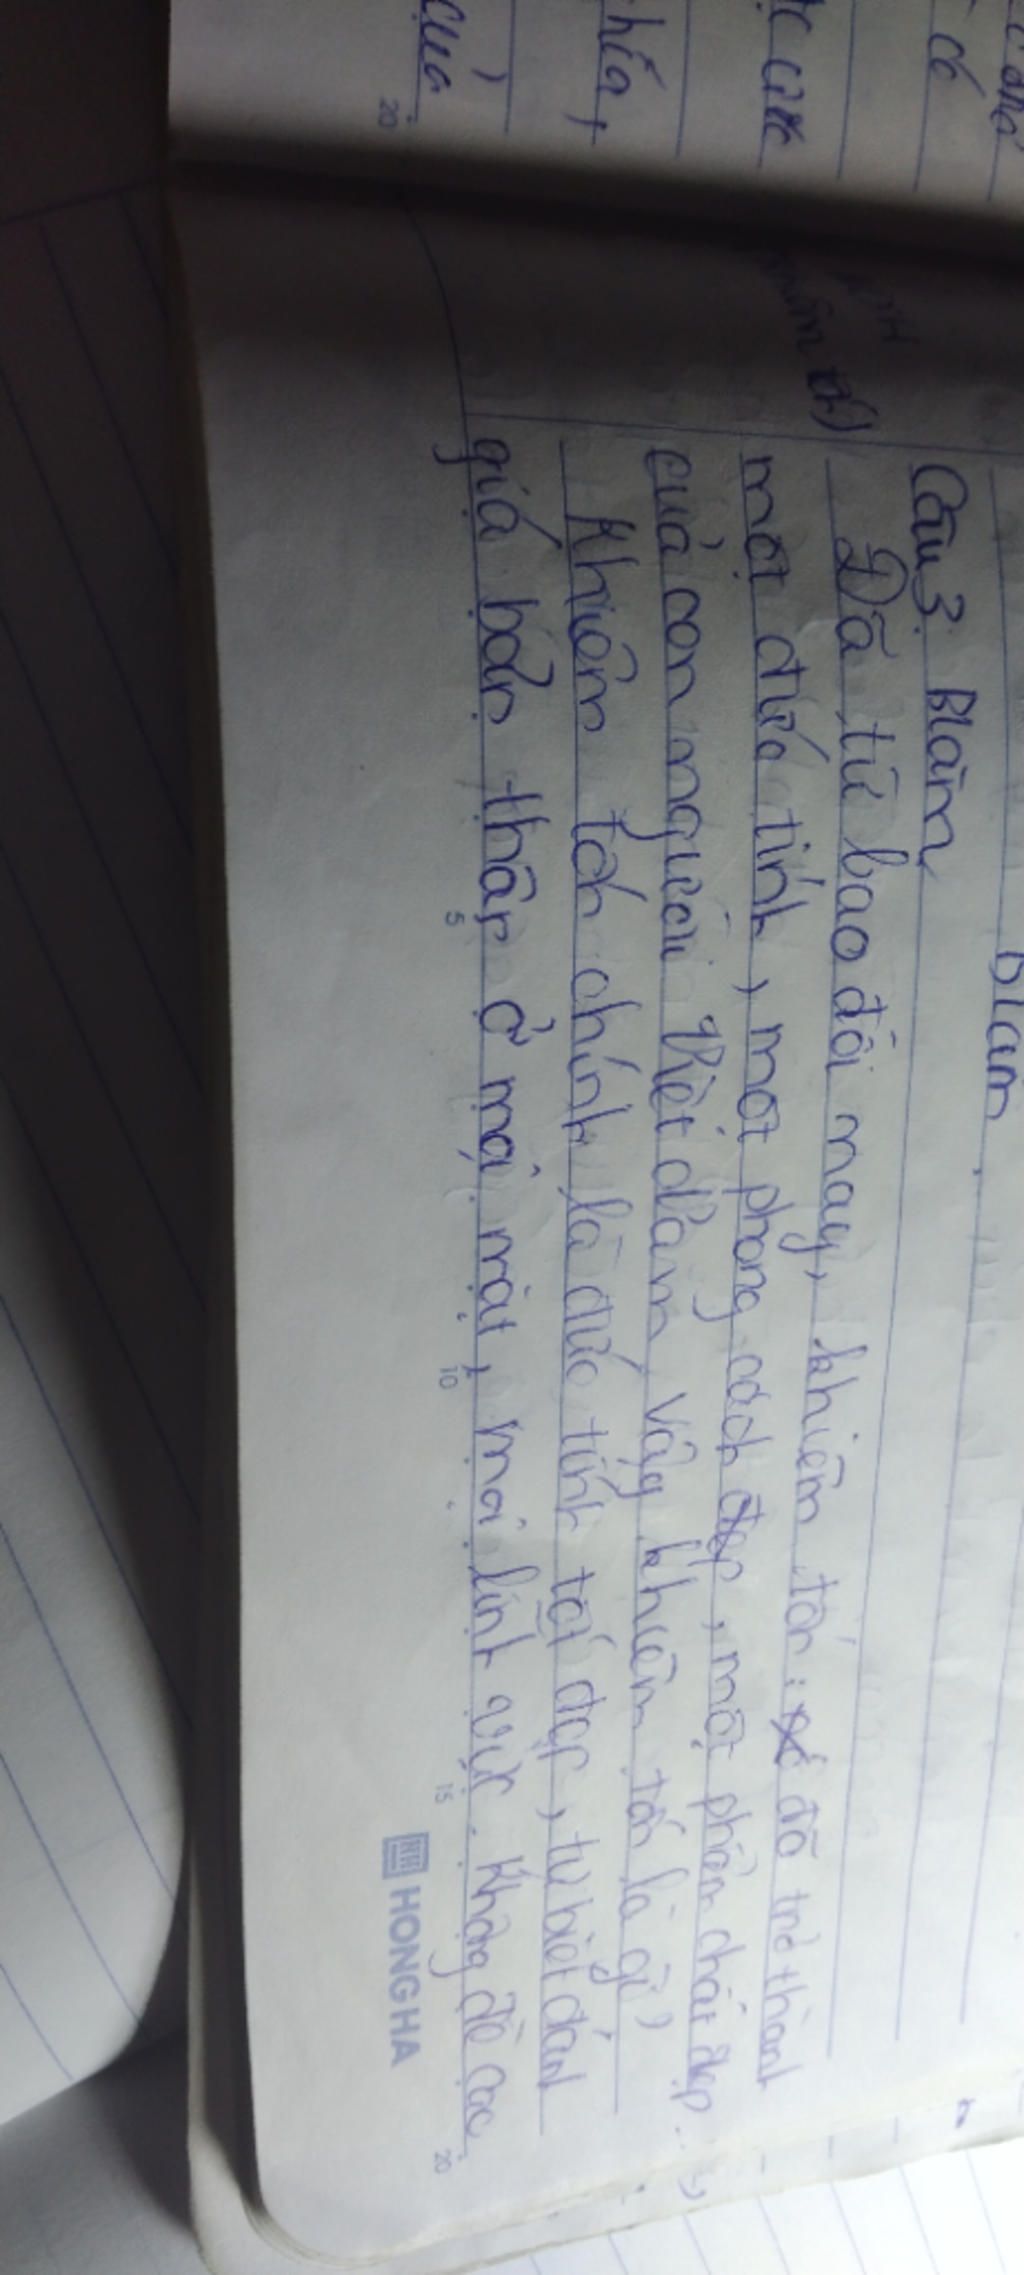 có
của
20
Blàm
Câu 3. Blàm
Đã từ bao đời nay, khiêm tốn : đã trở thành
một đức tính, một phong cách đẹp, một phẩm chất đẹp
của con người Việt dam, vậy khiêm tốn là gì?
Khiêm tốn chính là đức tính tốt đẹp, tự biết đánh
giá bản thân ở mọi mặt, mọi lĩnh vực. Không đề cao
5 10 15 20
HONG HA